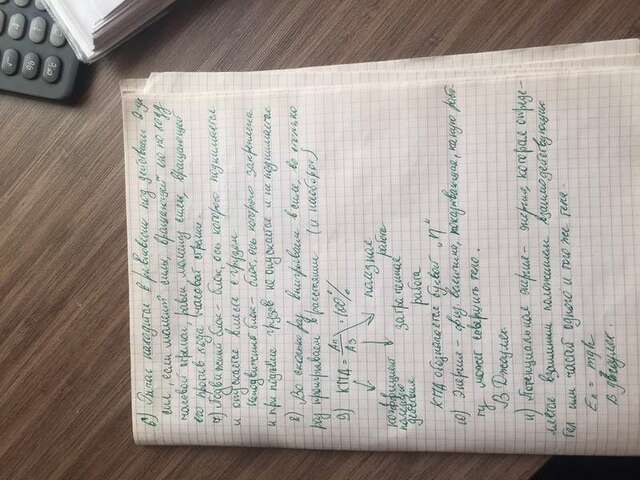 6) Рычаг находится в равновесии под действием 2-ух
сил, если момент силы, вращающей его по ходу
часовой стрелки, равен моменту силы, вращающей
его против хода часовой стрелки.
7) Подвижный блок - блок, ось которого поднимается
и опускается вместе с грузом
Неподвижный блок - блок, ось которого закреплена
и при подъёме грузов не опускается и не поднимается
8) Во сколько раз выигрываем в силе, во столько
раз проигрываем в расстоянии (и наоборот)
9) КПД = Aп/Aз · 100%
коэффициент полезного действия
затраченная работа
полезная работа
КПД обозначается буквой „η"
10) Энергия - физ. величина, показывающая, какую рабо-
ту может совершить тело.
В Джоулях
11) Потенциальная энергия - энергия, которая опреде-
ляется взаимным положением взаимодействующих
тел или частей одного и того же тела.
Eп = mgh
В джоулях.